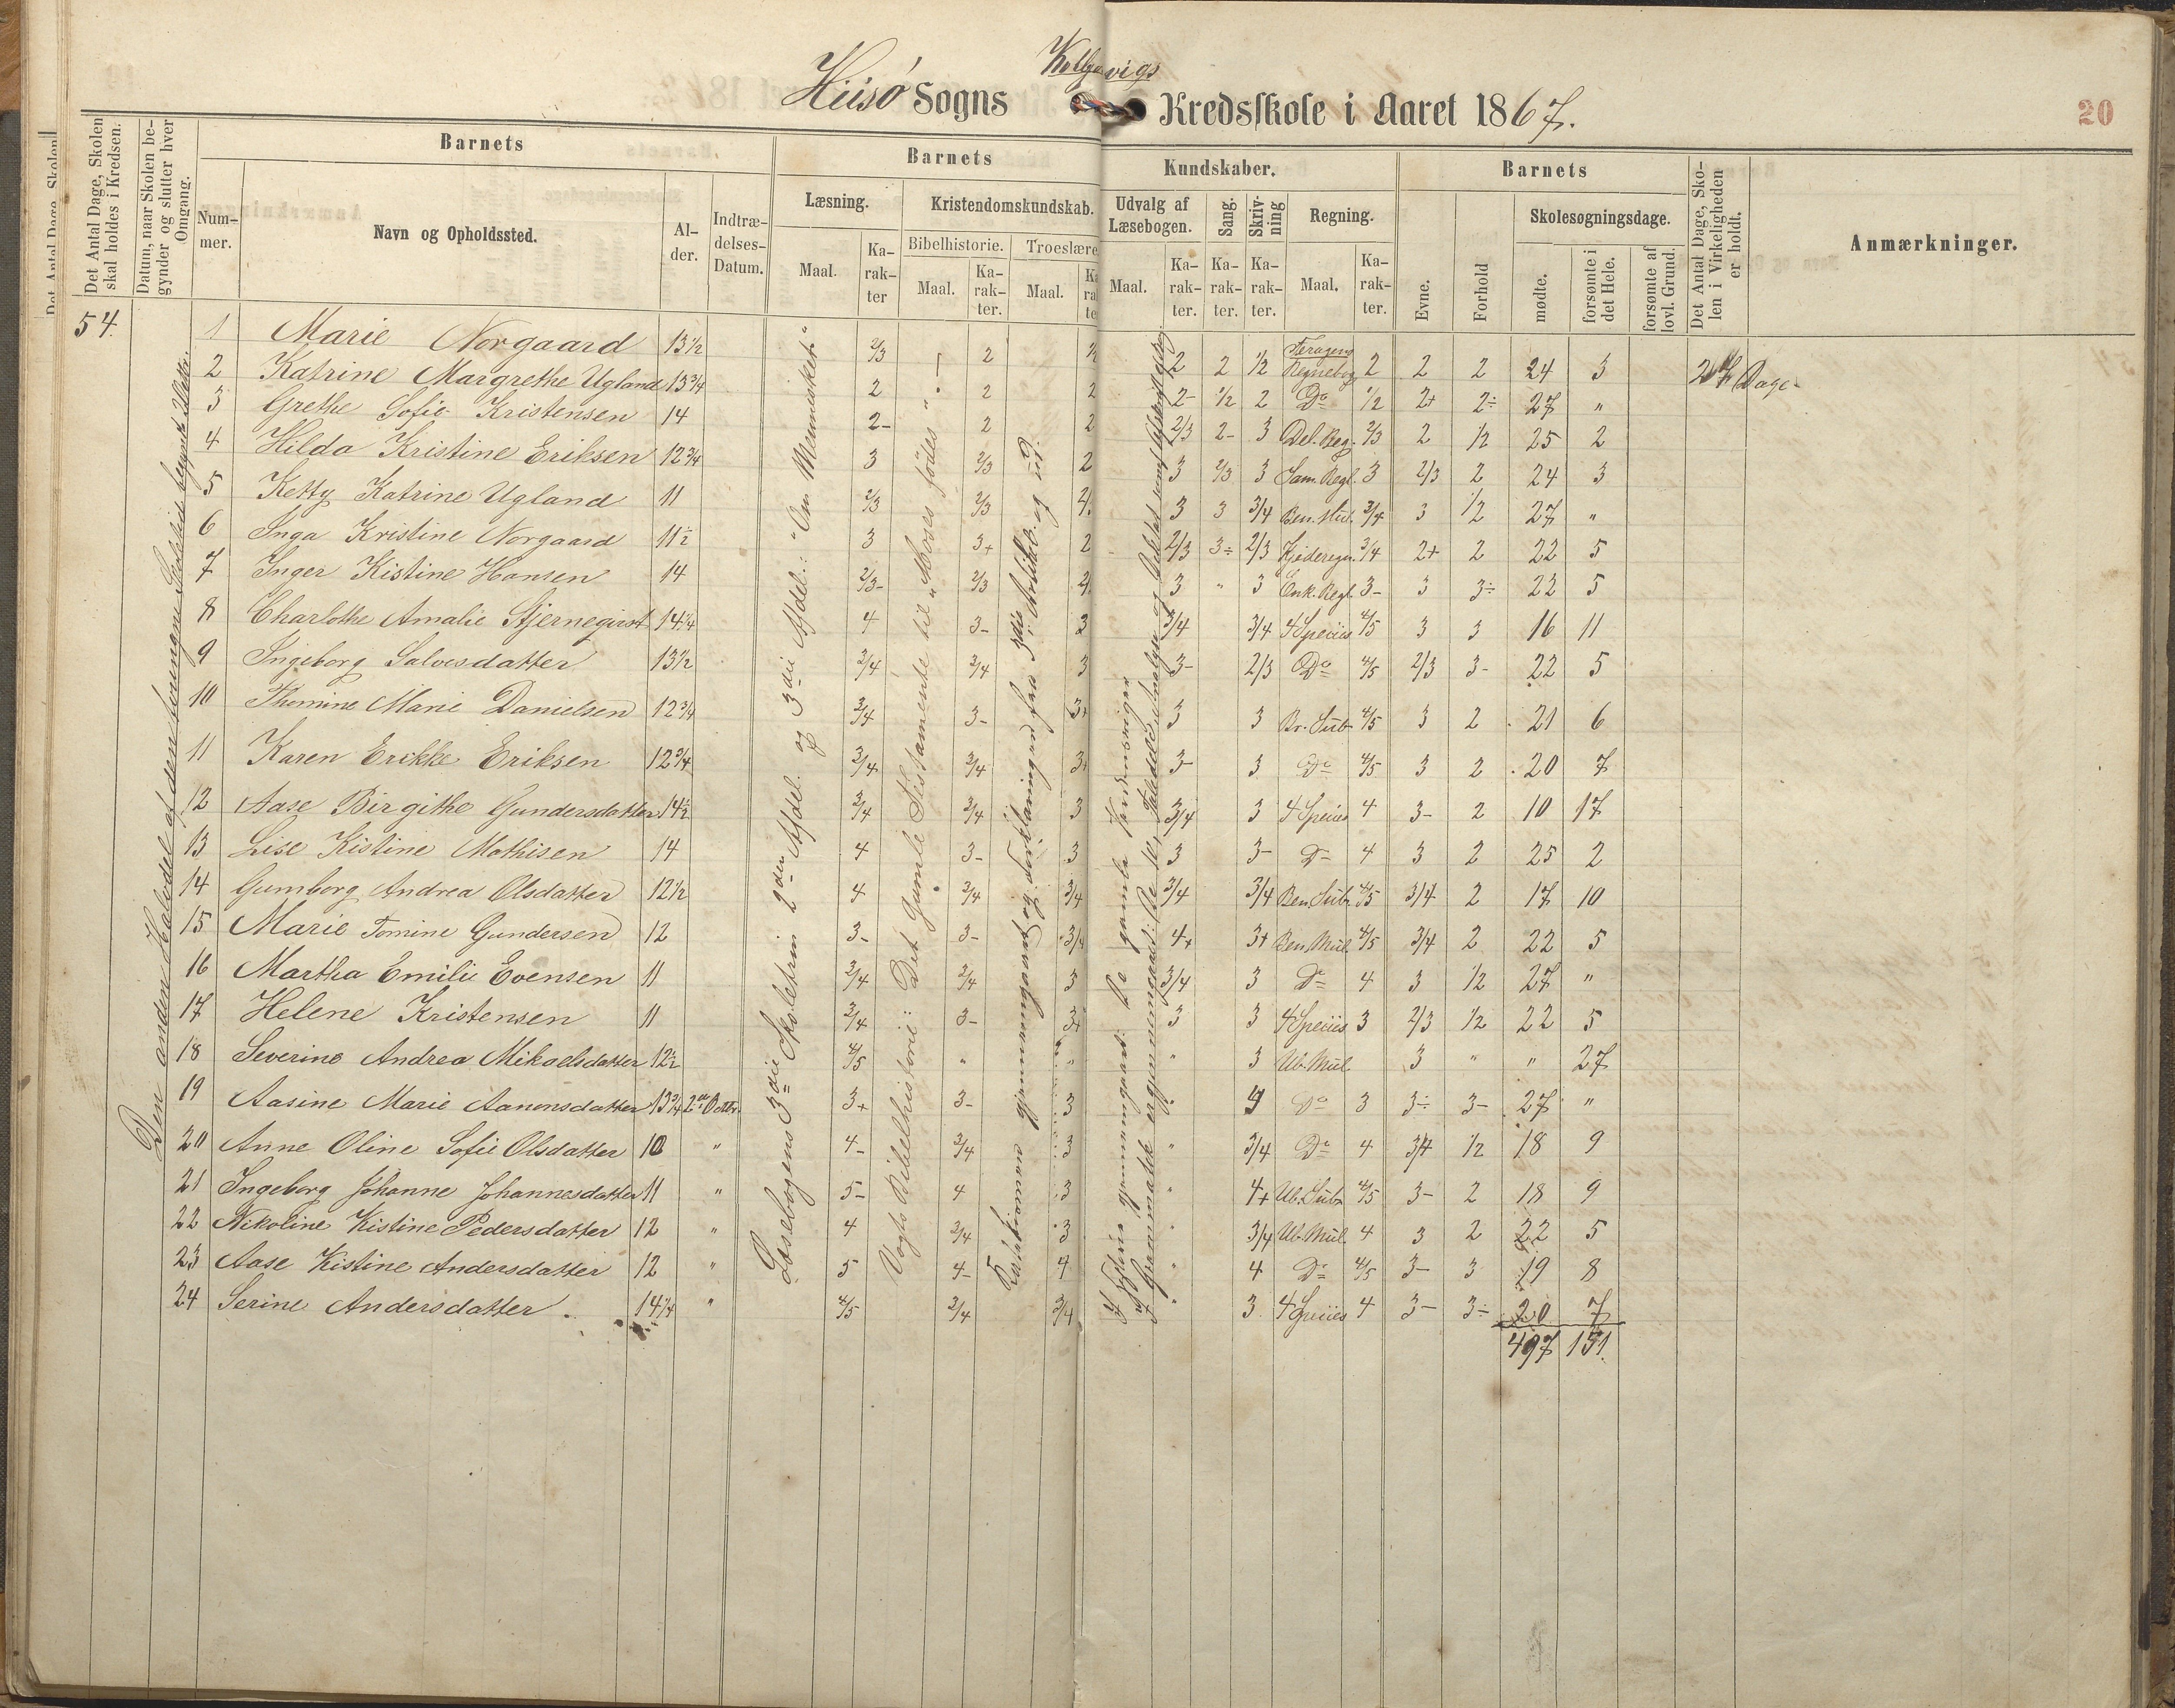 Hisø Sogns Kolbjørnsvigs Kredsskole i Aaret 1867.
20
Det Antal Dage, Skolen skal holdes i Kredsen.
Datum, naar Skolen begynder og slutter hver Omgang.
Barnets
Nummer.
Navn og Opholdssted.
Alder.
Indtrædelses-Datum.
Barnets Kundskaber.
Læsning.
Maal.
Karakter
Kristendomskundskab.
Bibelhistorie.
Maal.
Karakter.
Troeslære
Maal.
Udvalg af Læsebogen.
Maal.
Karakter.
Sang.
Karakter.
Skrivning
Karakter.
Regning.
Maal.
Karakter.
Barnets
Evne.
Forhold
Skolesøgningsdage.
mødte.
forsømte i det Hele.
forsømte af lovl. Grund.
Det Antal Dage, Skolen i Virkeligheden er holdt.
Anmærkninger.
54.
1 Marie Norgaard 13½ 2/3 2 ½ 2 2 ½ Regnebog 2 2 2 24 3 27 Dage
2 Katrine Margrethe Ugland 13¾ 2 2 2 2- ½ 2 Do ½ 2+ 2÷ 27 "
3 Grethe Sofie Kristensen 14 2- 2 2 2/3 2- 3 Del. Reg. 2/3 2 ½ 25 2
4 Hilda Kristine Eriksen 12¾ 3 2/3 2 3 2/3 3 Sam. Regl. 3 2/3 2 24 3
5 Ketty Katrine Ugland 11 2/3 2/3 3 3 3/4 Ben. Mul. 3/4 3 ½ 27 "
6 Inga Kristine Norgaard 11½ 3 3+ 2 2/3 3÷ 2/3 Kjederegn. 3/4 2+ 2 22 5
7 Inger Kistine Hansen 14 2/3- 2/3 3 " 3 Enk. Regl. 3- 3 3÷ 22 5
8 Charlothe Amalie Stjerneqvist 14¼ 4 3- 3 3/4 3/4 4 Speciis 4/5 3 3 16 11
9 Ingeborg Salvesdatter 13½ 3/4 3/4 3 3- 2/3 Do 4/5 2/3 3- 22 5
10 Thomine Marie Danielsen 12¾ 3/4 3- 3+ 3 3 Br. Sub. 4/5 3 2 21 6
11 Karen Erikke Eriksen 12¾ 3/4 3/4 3+ 3- 3 Do 4/5 3 2 20 7
12 Aase Birgithe Gundersdatter 14½ 3/4 3/4 3 3/4 3 4 Speciis 4 3- 2 10 17
13 Lise Kistine Mathisen 14 4 3- 3 3 3- Do 4 3 2 25 2
14 Gumborg Andrea Olsdatter 12½ 4 3/4 3/4 3/4 3/4 Ben. Sub. 4/5 3/4 2 17 10
15 Marie Tomine Gundersen 12 3- 3- 3/4 4+ 3+ Ben. Mul. 4/5 3/4 2 22 5
16 Martha Emilie Evensen 11 3/4 3/4 3 3/4 3 Do 4 3 ½ 27 "
17 Helene Kristensen 11 3/4 3- 3+ 3 3 4 Speciis 3 2/3 ½ 22 5
18 Severine Andrea Mikaelsdatter 12½ 4/5 " " " 3 Ub. Mul. 3 " " 27
19 Aasine Marie Aanonsdatter 13¾ 2den Octbr. 3+ 3- 3 " Do 3 3÷ 3- 27 "
20 Anne Oline Sofie Olsdatter 10 " 4- 3/4 3 " 3/4 Do 4 3/4 ½ 18 9
21 Ingeborg Johanne Johannesdatter 11 " 5- 4 3 " 4+ Ub. Sub. 4/5 3- 2 18 9
22 Nikoline Kistine Pedersdatter 12 " 4 3/4 3 " 3/4 Ub. Mul. 4 3 2 22 5
23 Aase Kistine Andersdatter 12 " 5 4- 4 " 4 Do 4/5 3- 3 19 8
24 Serine Andersdatter. 14¼ " 4/5 3/4 3/4 " 3 4 Speciis 4 3- 3÷ 20 7
497 151
Den anden Halvdel af den tvungne Skoletid begynte
Læsebogens 3die Skoletrin 2den Afdel. og 3die Afdel.: "Om Mennesket."
Vogts Bibelhistorie: Det Gamle Testamente til "Moses fødes"
Katekismen gjennemgaaet og Forklaringen fra 3die Artikel og ud.